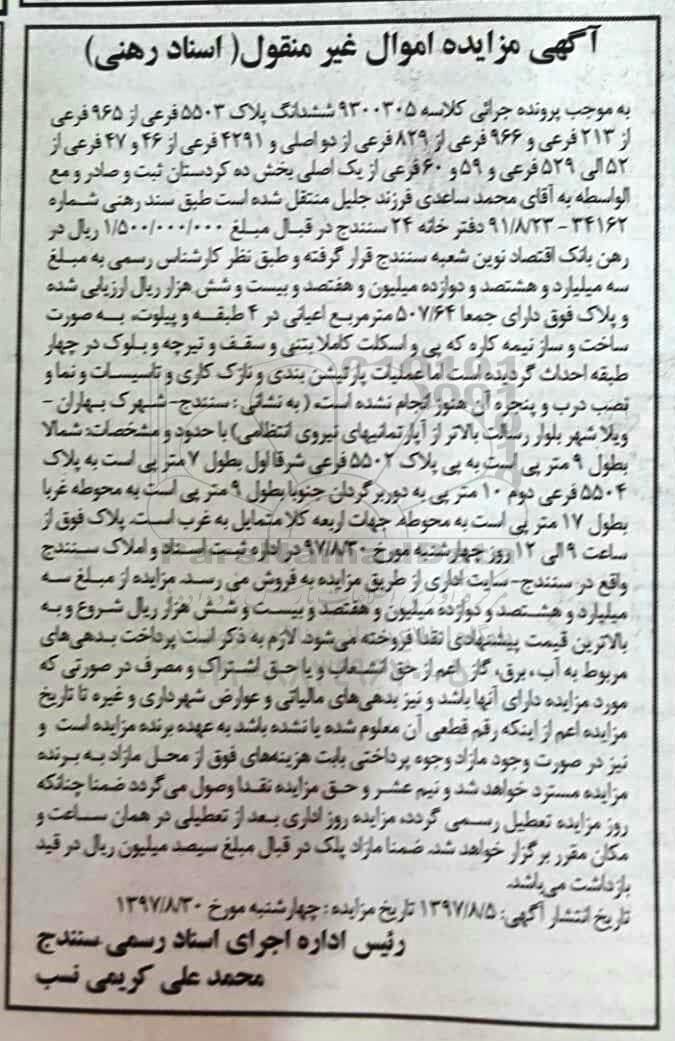 آگهی مزایده اموال غیر منقول( اسناد رهنی)
به موجب پرونده جرائی کلاسه ۹۳۰۰۳۰۵ ششدانگ پلاک ۵۵۰۳ فرعی از ۹۶۵ فرعی
از ۲۱۳ فرعی و ۹۶۶ فرعی از ۸۲۹ فرعی از دو اصلی و ۴۲۹۱ فرعی از ۴۶ و ۴۷ فرعی از
۵۲ الی ۵۲۹ فرعی و ۵۹ و ۶۰ فرعی از یک اصلی بخش ده کردستان ثبت و صادر و مع
الواسطه به آقای محمد ساعدی فرزند جلیل منتقل شده است طبق سند رهنی شماره
۳۴۱۶۲ - ۹۱/۸/۲۳ دفتر خانه ۲۴ سنندج در قبال مبلغ ۱/۵۰۰/۰۰۰/۰۰۰ ریال در
رهن بانک اقتصاد نوین شعبه سنندج قرار گرفته و طبق نظر کارشناس رسمی به مبلغ
سه میلیارد و هشتصد و دوازده میلیون و هفتصد و بیست و شش هزار ریال ارزیابی شده
و پلاک فوق دارای جمعا ۵۰۷/۶۴ متر مربع اعیانی در ۴ طبقه و پیلوت، به صورت
ساخت و ساز نیمه کاره که پی و اسکلت کاملا بتنی و سقف و تیرچه و بلوک در چهار
طبقه احداث گردیده است اما عملیات پارتیشن بندی و نازک کاری و تاسیسات و نما و
نصب درب و پنجره آن هنوز انجام نشده است، ( به نشانی : سنندج- شهرک بهاران -
ویلا شهر بلوار رسالت بالاتر از آپارتمانهای نیروی انتظامی) با حدود و مشخصات: شمالا
بطول ۹ متر پی است به پی پلاک ۵۵۰۲ فرعی شرقا اول بطول ۷ متر پی است به پلاک
۵۵۰۴ فرعی دوم ۱۰ متر پی به دوربرگردان جنوبا بطول ۹ متر پی است به محوطه غربا
بطول ۱۷ متر پی است به محوطه. جهات اربعه کلا متمایل به غرب است. پلاک فوق از
ساعت ۹ الی ۱۲ روز چهارشنبه مورخ ۹۷/۸/۳۰ در اداره ثبت اسناد و املاک سنندج
واقع در سنندج- سایت اداری از طریق مزایده به فروش می رسد. مزایده از مبلغ سه
میلیارد و هشتصد و دوازده میلیون و هفتصد و بیست و شش هزار ریال شروع و به
بالاترین قیمت پیشنهادی نقدا فروخته می‌شود. لازم به ذکر است پرداخت بدهی‌های
مربوط به آب، برق، گاز اعم از حق انشعاب و یا حق اشتراک و مصرف در صورتی که
مورد مزایده دارای آنها باشد و نیز بدهی‌های مالیاتی و عوارض شهرداری و غیره تا تاریخ
مزایده اعم از اینکه رقم قطعی آن معلوم شده یا نشده باشد به عهده برنده مزایده است و
نیز در صورت وجود مازاد وجوه پرداختی بابت هزینه‌های فوق از محل مازاد به برنده
مزایده مسترد خواهد شد و نیم عشر و حق مزایده نقدا وصول می‌گردد ضمنا چنانکه
روز مزایده تعطیل رسمی گردد، مزایده روز اداری بعد از تعطیلی در همان ساعت و
مکان مقرر برگزار خواهد شد. ضمنا مازاد پلک در قبال مبلغ سیصد میلیون ریال در قید
بازداشت می‌باشد.
تاریخ انتشار آگهی: ۱۳۹۷/۸/۵ تاریخ مزایده : چهارشنبه مورخ ۱۳۹۷/۸/۳۰
رئیس اداره اجرای اسناد رسمی سنندج
محمد علی کریمی نسب